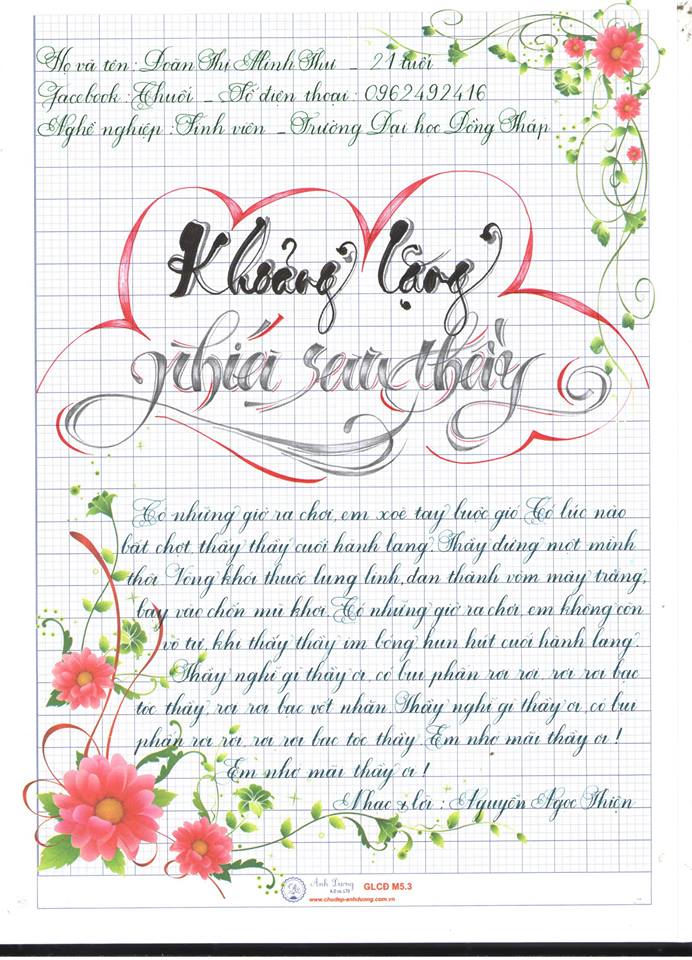 Họ và tên : Đoàn Thị Minh Thư _ 21 tuổi
Facebook : Chuối _ Số điện thoại : 0962492416
Nghề nghiệp : Sinh viên _ Trường Đại học Đồng Tháp
Khoảng lặng
phía sau thầy
Có những giờ ra chơi, em xoè tay buộc gió. Có lúc nào
bất chợt, thấy thầy cuối hành lang. Thầy đứng một mình
thôi. Vòng khói thuốc lung linh, đan thành vòm mây trắng,
bay vào chốn mù khơi. Có những giờ ra chơi, em không còn
vô tư, khi thấy thầy im bóng hun hút cuối hành lang.
Thầy nghĩ gì thầy ơi, có bụi phấn rơi rơi, rơi rơi bạc
tóc thầy, rơi rơi bạc vết nhăn. Thầy nghĩ gì thầy ơi, có bụi
phấn rơi rơi, rơi rơi bạc tóc thầy. Em nhớ mãi thầy ơi !
Em nhớ mãi thầy ơi !
Nhạc & lời : Nguyễn Ngọc Thiện
Anh Dương
GLCĐ M5.3
www.chudep-anhduong.com.vn